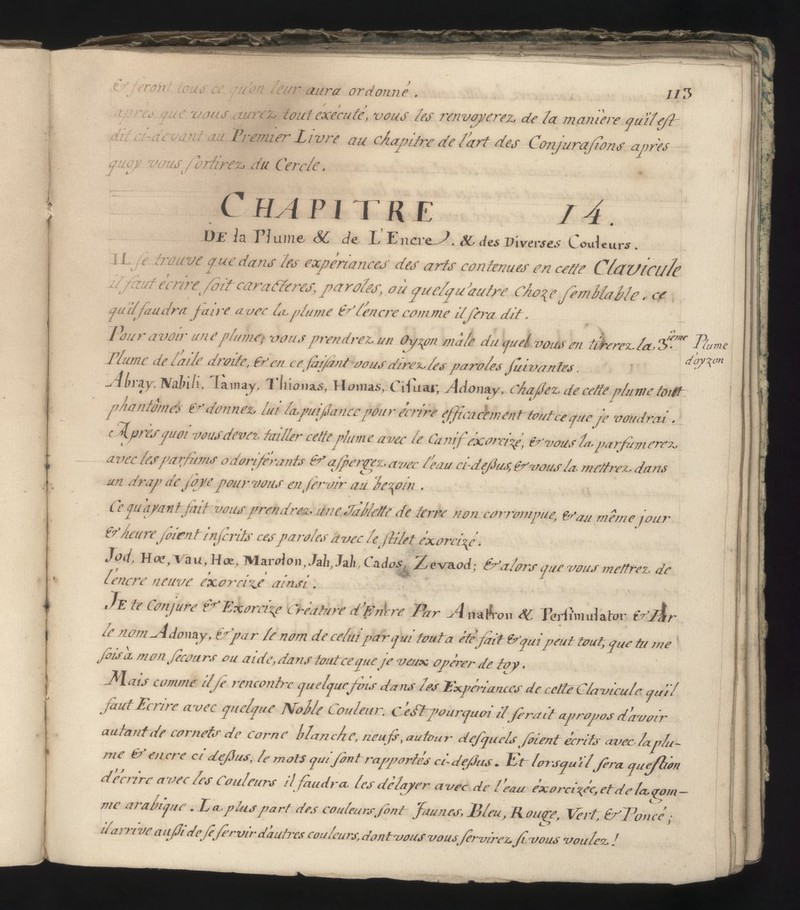 & seront tous ce qu'on leur aura ordonné.
113
après que vous aurez tout éxécuté, vous les renvoyerez de la maniere qu'il est
dit ci-devant au Premier Livre au chapitre de l'art des Conjurasions après
quoy vous sortirez du Cercle.
CHAPITRE 14.
DE la Plume & de L'Encre. & des Diverses Couleurs.
IL se trouve que dans les expériances des arts contenues en cette Clavicule
il faut écrire soit caracteres, paroles, où quelqu'autre choze semblable. ce
qu'il faudra faire avec la plume & l'encre comme il sera dit.
Pour avoir une plume, vous prendrez un Oyzon mâle du quel vous en tirerez la 3.ieme
Plume de l'aile droite, & en ce faisant vous direz les paroles suivantes.
Plume
d'oyzon
Abray, Nabili, Tamay, Thionas, Homas, Cisuar, Adonay. Chaßez de cette plume tout
phantômes & donnez lui la puißance pour écrire efficacement tout ce que je voudrai.
Après quoi vous devez tailler cette plume avec le Canif éxorcizé, & vous la parfumerez
avec les parfums odoriférants & aspergez avec l'eau ci-deßus, & vous la mettrez dans
un drap de soye pour vous en servir au bezoin.
Ce qu'ayant fait vous prendrez une Tablette de terre non corrompue, & au même jour
& heure soient inscrits ces paroles avec le stilet éxorcizé.
Jod, Hœ, Vau, Hœ, Marolon, Jah, Jah, Cados, Zevaod; & alors que vous mettrez de
l'encre neuve éxorcizé ainsi.
JE te Conjure & Exorcize Créature d'Encre Par Anatron & Persimulator & Par
le nom Adonay, & par le nom de celui par qui tout a été fait & qui peut tout, que tu me
sois à mon secours ou aide, dans tout ce que je veux opérer de toy.
Mais comme il se rencontre quelque fois dans les Expériances de cette Clavicule qu'il
faut Ecrire avec quelque Noble Couleur. C'est pourquoi il serait apropos d'avoir
autant de cornets de corne blanche, neufs, autour desquels soient écrits avec la plu-
me & encre ci deßus, le mots qui sont rapportés ci-deßus. Et lorsqu'il sera question
d'écrire avec les Couleurs il faudra les délayer avec de l'eau éxorcizée, et de la gom-
me arabique. La plus part des couleurs sont Jaunes, Bleu, Rouge, Vert, & Poncé;
il arrive außi de se servir d'autres couleurs, dont vous vous servirez si vous voulez!